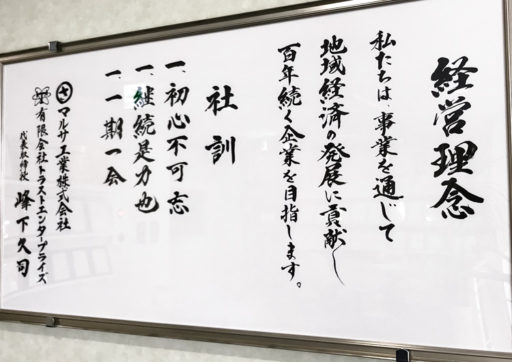 経営理念
私たちは、事業を通じて
地域経済の発展に貢献し
百年続く企業を目指します。
社訓
一、初心不可忘
一、継続是力也
一、一期一会
マルサ工業株式会社
有限会社トラストエンタープライズ
代表取締役 峰下久司